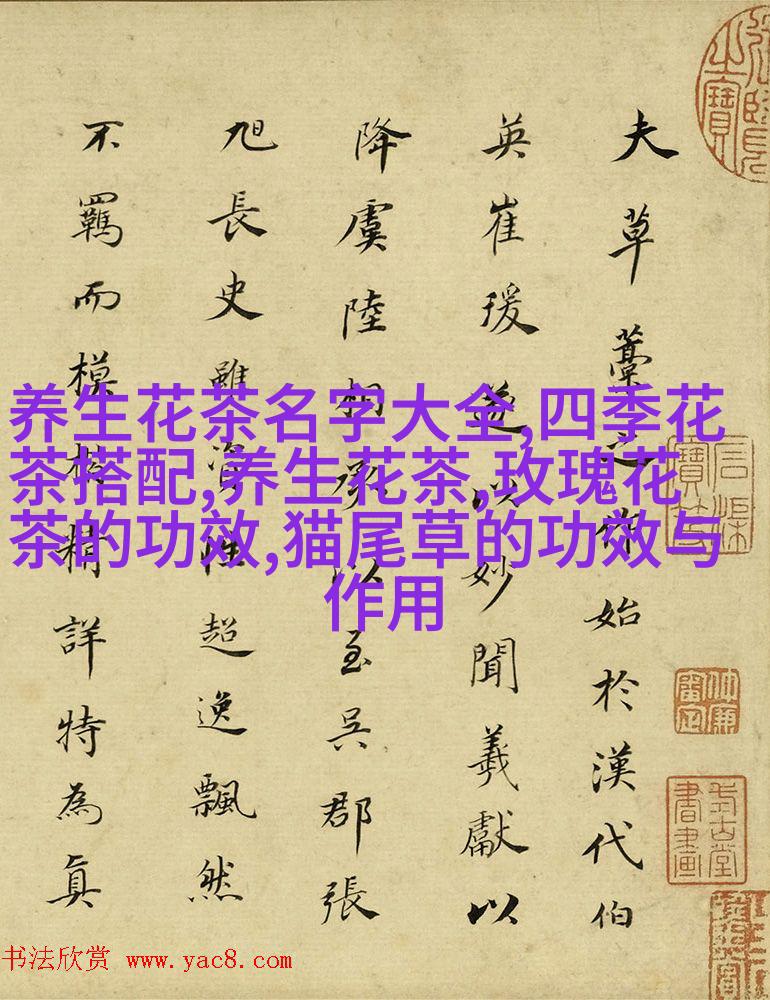 养生花茶名字大全,四季花
茶搭配,养生花茶,玫瑰花
茶的功效,猫尾草的功效与
作用
夫草藁之作始於漢代伯
英崔瑗並以妙聞羲獻以
降虞陸相承以至吳郡張
旭長史雖資性超逸飄然
不羈而模楷精詳特為真
书法欣赏 www.yac8.com